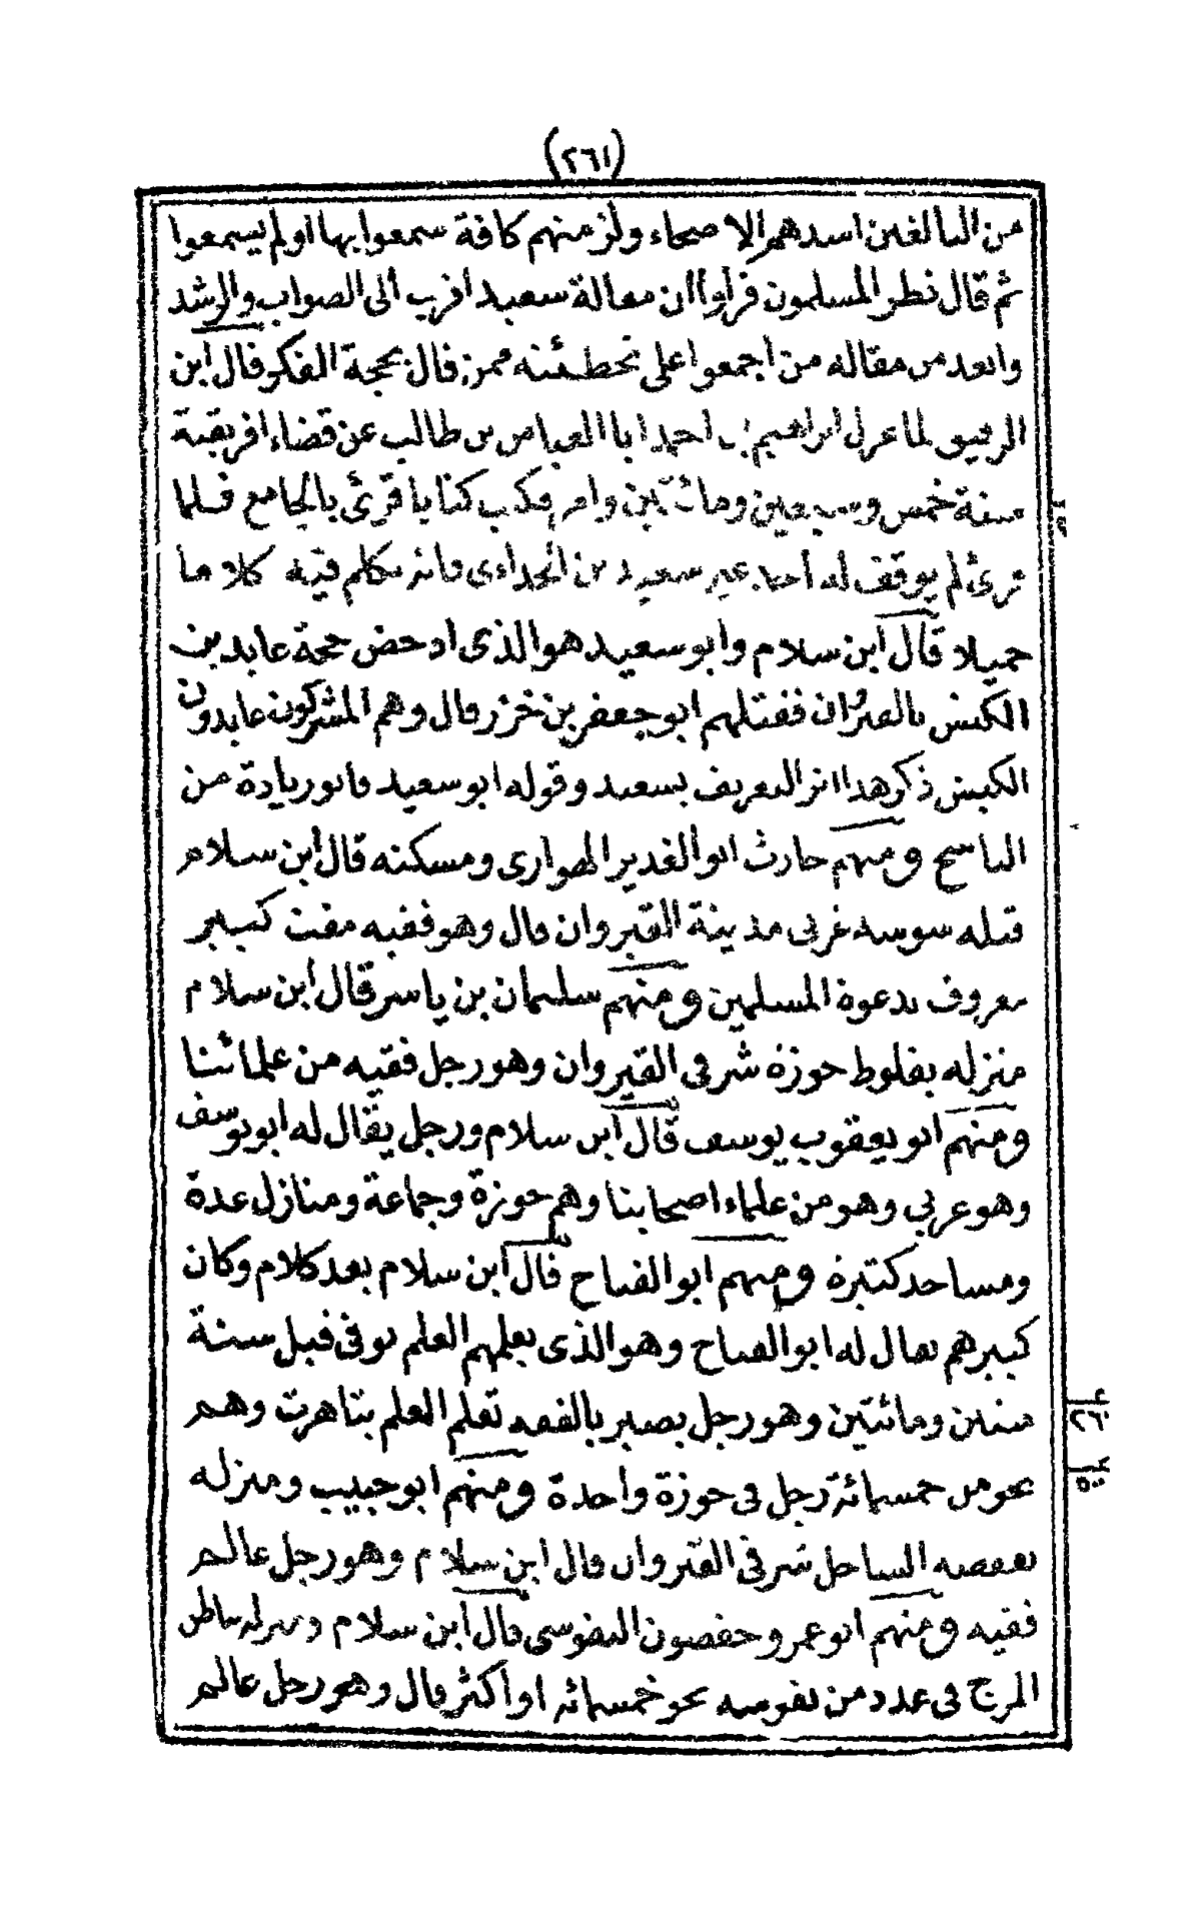 (٢٦١)
من البالغين اسدهم الاصحاء ولزمنهم كافة سمعوا بها او لم يسمعوا
ثم قال نظر المسلمون فرأوا أن مقالة سعيد أقرب ألى الصواب والرشد
وابعد من مقاله من اجمعوا على تخطئنه ممن قال بحجة الفكر قال ابن
الرقيق لما عزل ابراهيم بن احمد ابا العباس بن طالب عن قضاء افريقية
سنة خمس وسبعين ومائتين وامر فكتب كتابا قرئ بالجامع فلما
قرئ لم يوقف له احد غير سعيد بن الحداءى فانه تكلم فيه كلاما
جميلا قال ابن سلام وابو سعيد هو الذى ادحض حجة عابدين
الكبش بالقيروان فقتلهم ابو جعفر بن خزر قال وهم المشركون عابدون
الكبش ذكر هدا التعريف بسعيد وقوله ابو سعيد فابو زيادة من
الناسخ ومنهم حارث ابو الغدير الهوارى ومسكنه قال ابن سلام
قبله سوسه غربى مدينة القيروان قال وهو فقيه مفت كبير
معروف بدعوة المسلمين ومنهم سليمان بن ياسر قال ابن سلام
منزله بقلوط حوزة شرقى القيروان وهو رجل فقيه من علمائنا
ومنهم ابو يعقوب يوسف قال ابن سلام ورجل يقال له ابو يوسف
وهو عربي وهو من علماء اصحابنا وهم حوزة وجماعة ومنازل عدة
ومساجد كثيرة ومنهم ابو الفياح قال ابن سلام بعد كلام وكان
كبيرهم يقال له ابو الصباح وهو الذى يعلمهم العلم توفى قبل سنة
ستين ومائتين وهو رجل بصير بالفقه تعلم العلم بتاهرت وهم
نحو من خمسمائة رجل فى حوزة واحدة ومنهم ابو حبيب ومنزله
بقفصه الساحل شرقى القيروان قال ابن سلام وهو رجل عالم
فقيه ومنهم ابو عمرو حفصون النفوسى قال ابن سلام ومنزله بباطن
المرج فى عدد من نفوسه نحو خمسمائه او أكثر قال وهو رجل عالم
٢٦٠